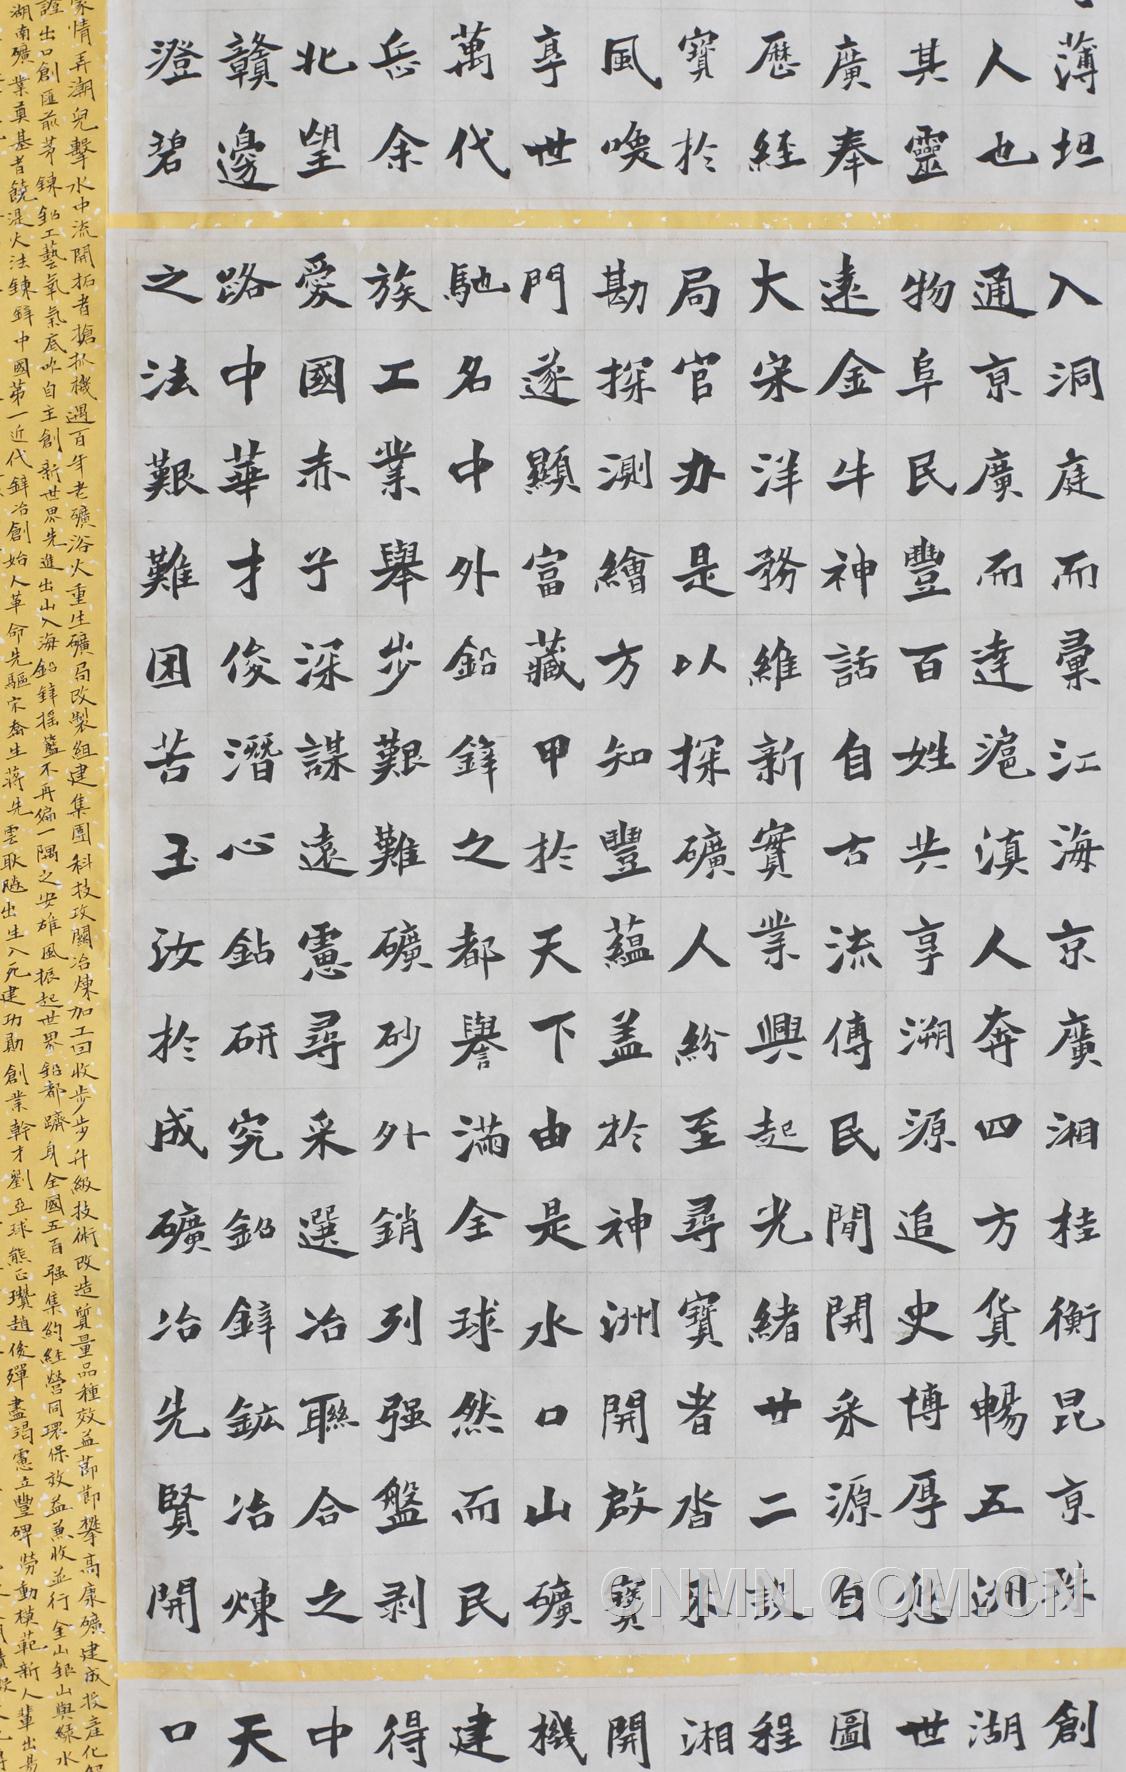 薄坦
人也
其靈
廣奉
歷經
寶於
風喚
亭世
萬代
岳余
北望
贛邊
澄碧
入洞庭而彙江海京廣湘桂衡昆京珠
通京廣而達滬滇人奔四方貨暢五湖
物阜民豐百姓共享溯源追史博厚悠
遠金牛神話自古流傳民間開采源自
大宋洋務維新實業興起光緒廿二設
局官办是以探礦人紛至尋寶者沓來
勘探測繪方知豐蘊蓋於神洲開啟寶
門遂顯富藏甲於天下由是水口山礦
馳名中外鉛鋅之都譽滿全球然而民
族工業舉步艱難礦砂外銷列强盤剥
愛國赤子深謀遠慮尋采選冶聯合之
路中華才俊潛心鉆研究鉛鋅鉱冶煉
之法艱難困苦玉汝於成礦冶先賢開
創
湖
世
圖
程
湘
開
機
建
得
中
天
口
情弄潮兒擊水中流開拓者搶抓機遇百年老礦浴火重生礦局改製組建集團科技攻關冶煉加工回收步步升級技術改造質量品種效益節節攀高康礦建成投産化解
出口創匯前茅鍊鉛工藝氧氣底吹自主創新世界先進出山入海鉛鋅摇籃不再偏一隅之安雄風振起世界鉛都躋身全國五百强集約經營同環保效益兼收並行金山銀山與緑水
湖南礦業奠基者饒湜火法鍊鋅中國第一近代鋅冶創始人革命先驅宋喬生蔣先雲耿飈出生入死建功勛創業幹才劉亞球熊正瓚趙俊殫盡謁慮立豐碑勞動模範新人輩出易
CNMN.COM.CN